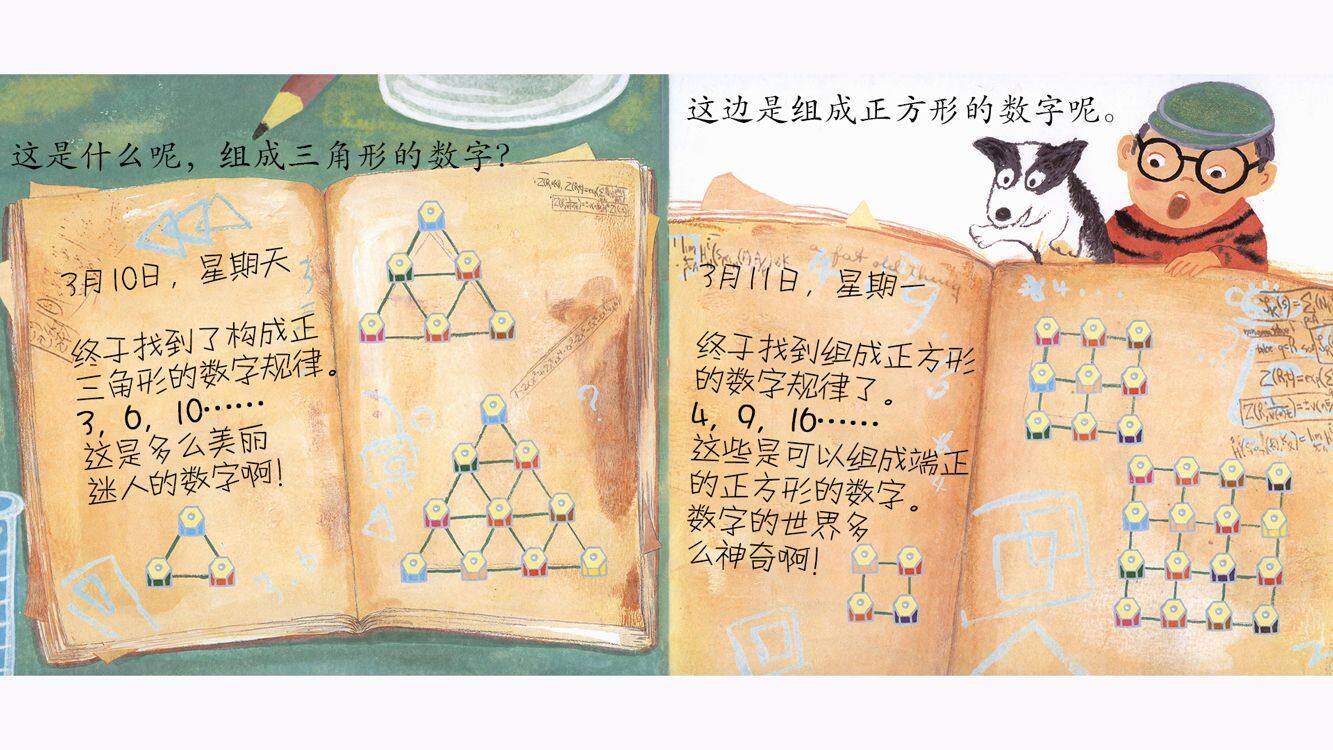 这是什么呢，组成三角形的数字？
3月10日，星期天
终于找到了构成正
三角形的数字规律。
3，6，10……
这是多么美丽
迷人的数字啊！
3.6
?
这边是组成正方形的数字呢。
3月11日，星期一
终于找到组成正方形
的数字规律了。
4，9，16……
这些是可以组成端正
的正方形的数字。
数字的世界多
么神奇啊！